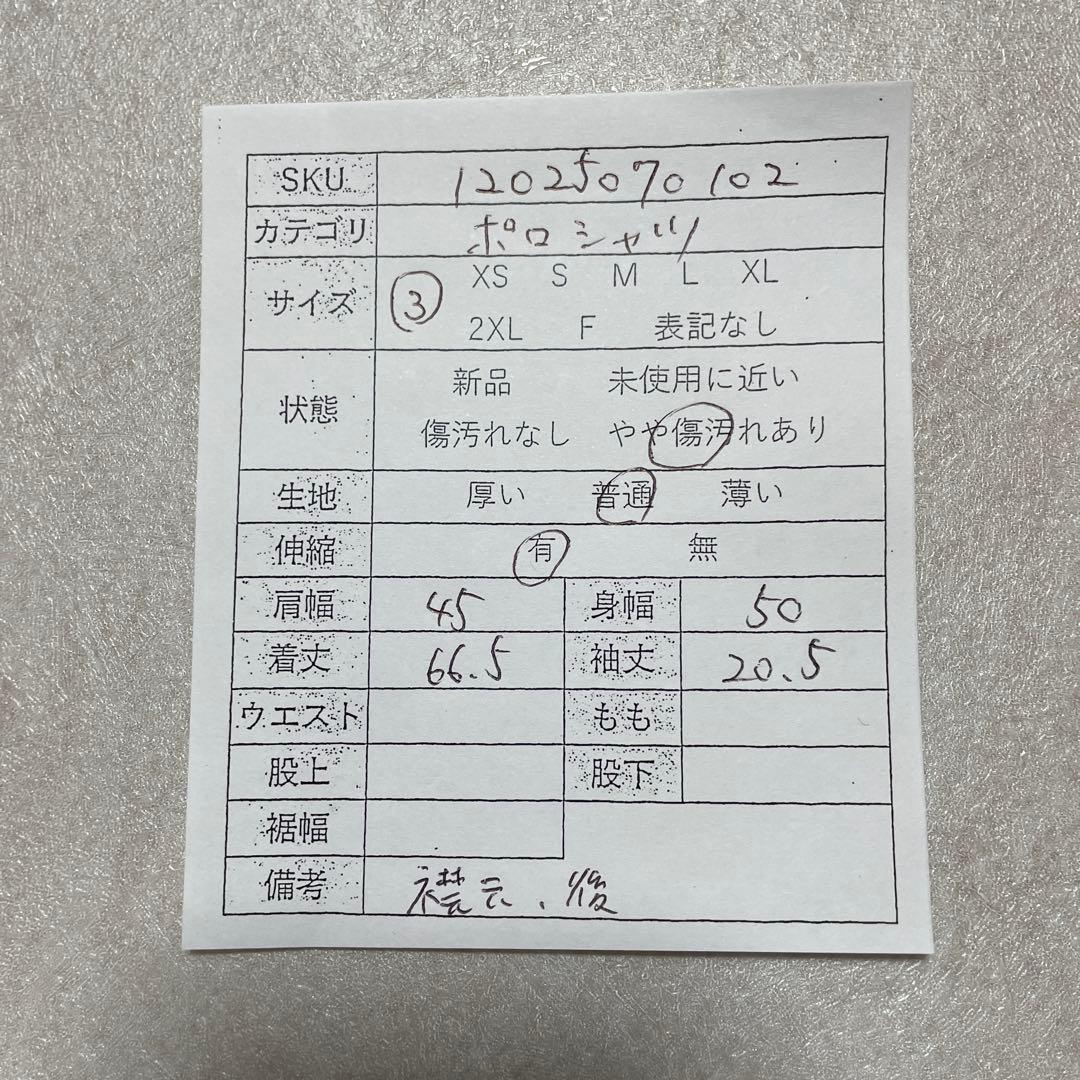 SKU 12025070102
カテゴリ ポロシャツ
サイズ ③ XS S M L XL
2XL F 表記なし
状態 新品 未使用に近い
傷汚れなし やや傷汚れあり
生地 厚い 普通 薄い
伸縮 有 無
肩幅 45 身幅 50
着丈 66.5 袖丈 20.5
ウエスト もも
股上 股下
裾幅
備考 襟、後